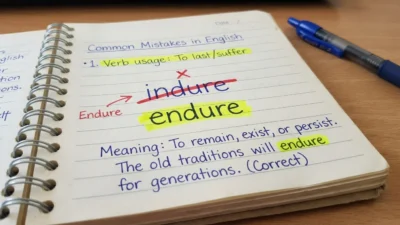 Common Mistakes in English
• 1. Verb usage: To last/suffer
x
indure
Endure
endure
Meaning: To remain, exist, or persist.
The old traditions will endure
for generations. (Correct)